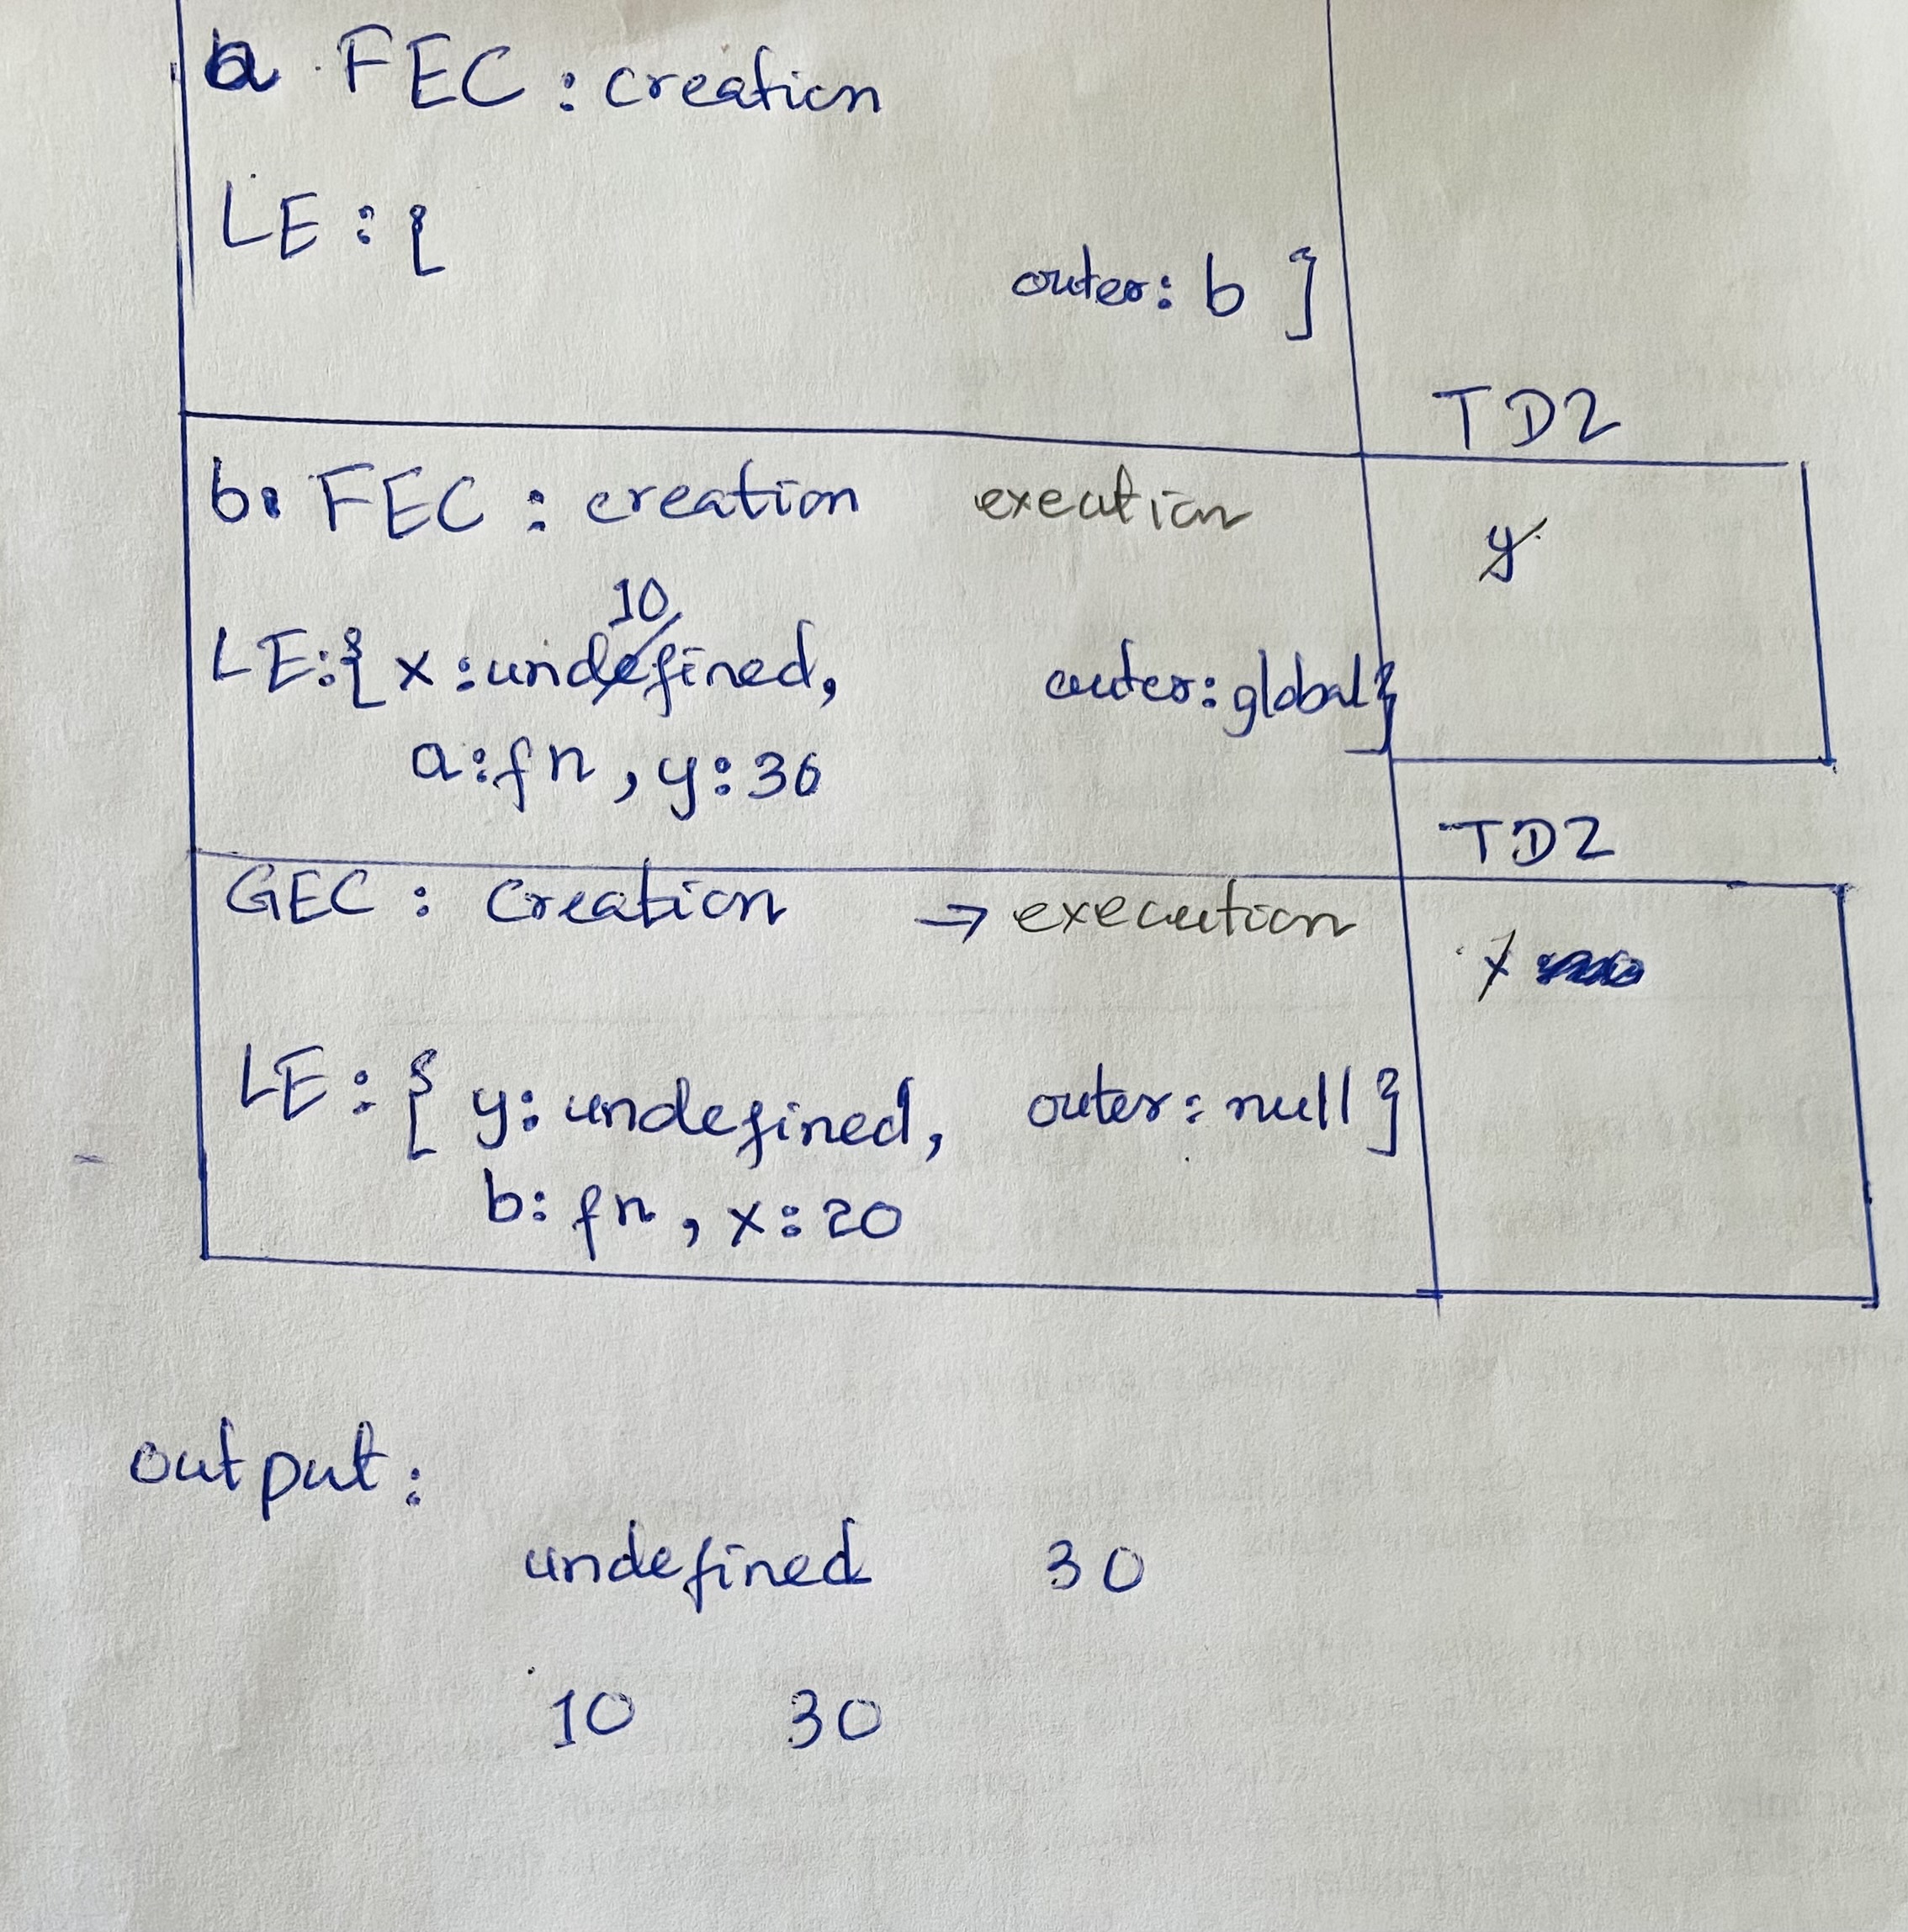 a FEC : creation
LE : {
outer : b }
TDZ
b. FEC : creation execution
y
10
LE:{ x : undefined, outer : global}
a : fn , y : 30
TDZ
GEC : Creation → execution
x
LE : { y : undefined, outer : null }
b : fn , x : 20
output :
undefined 30
10 30